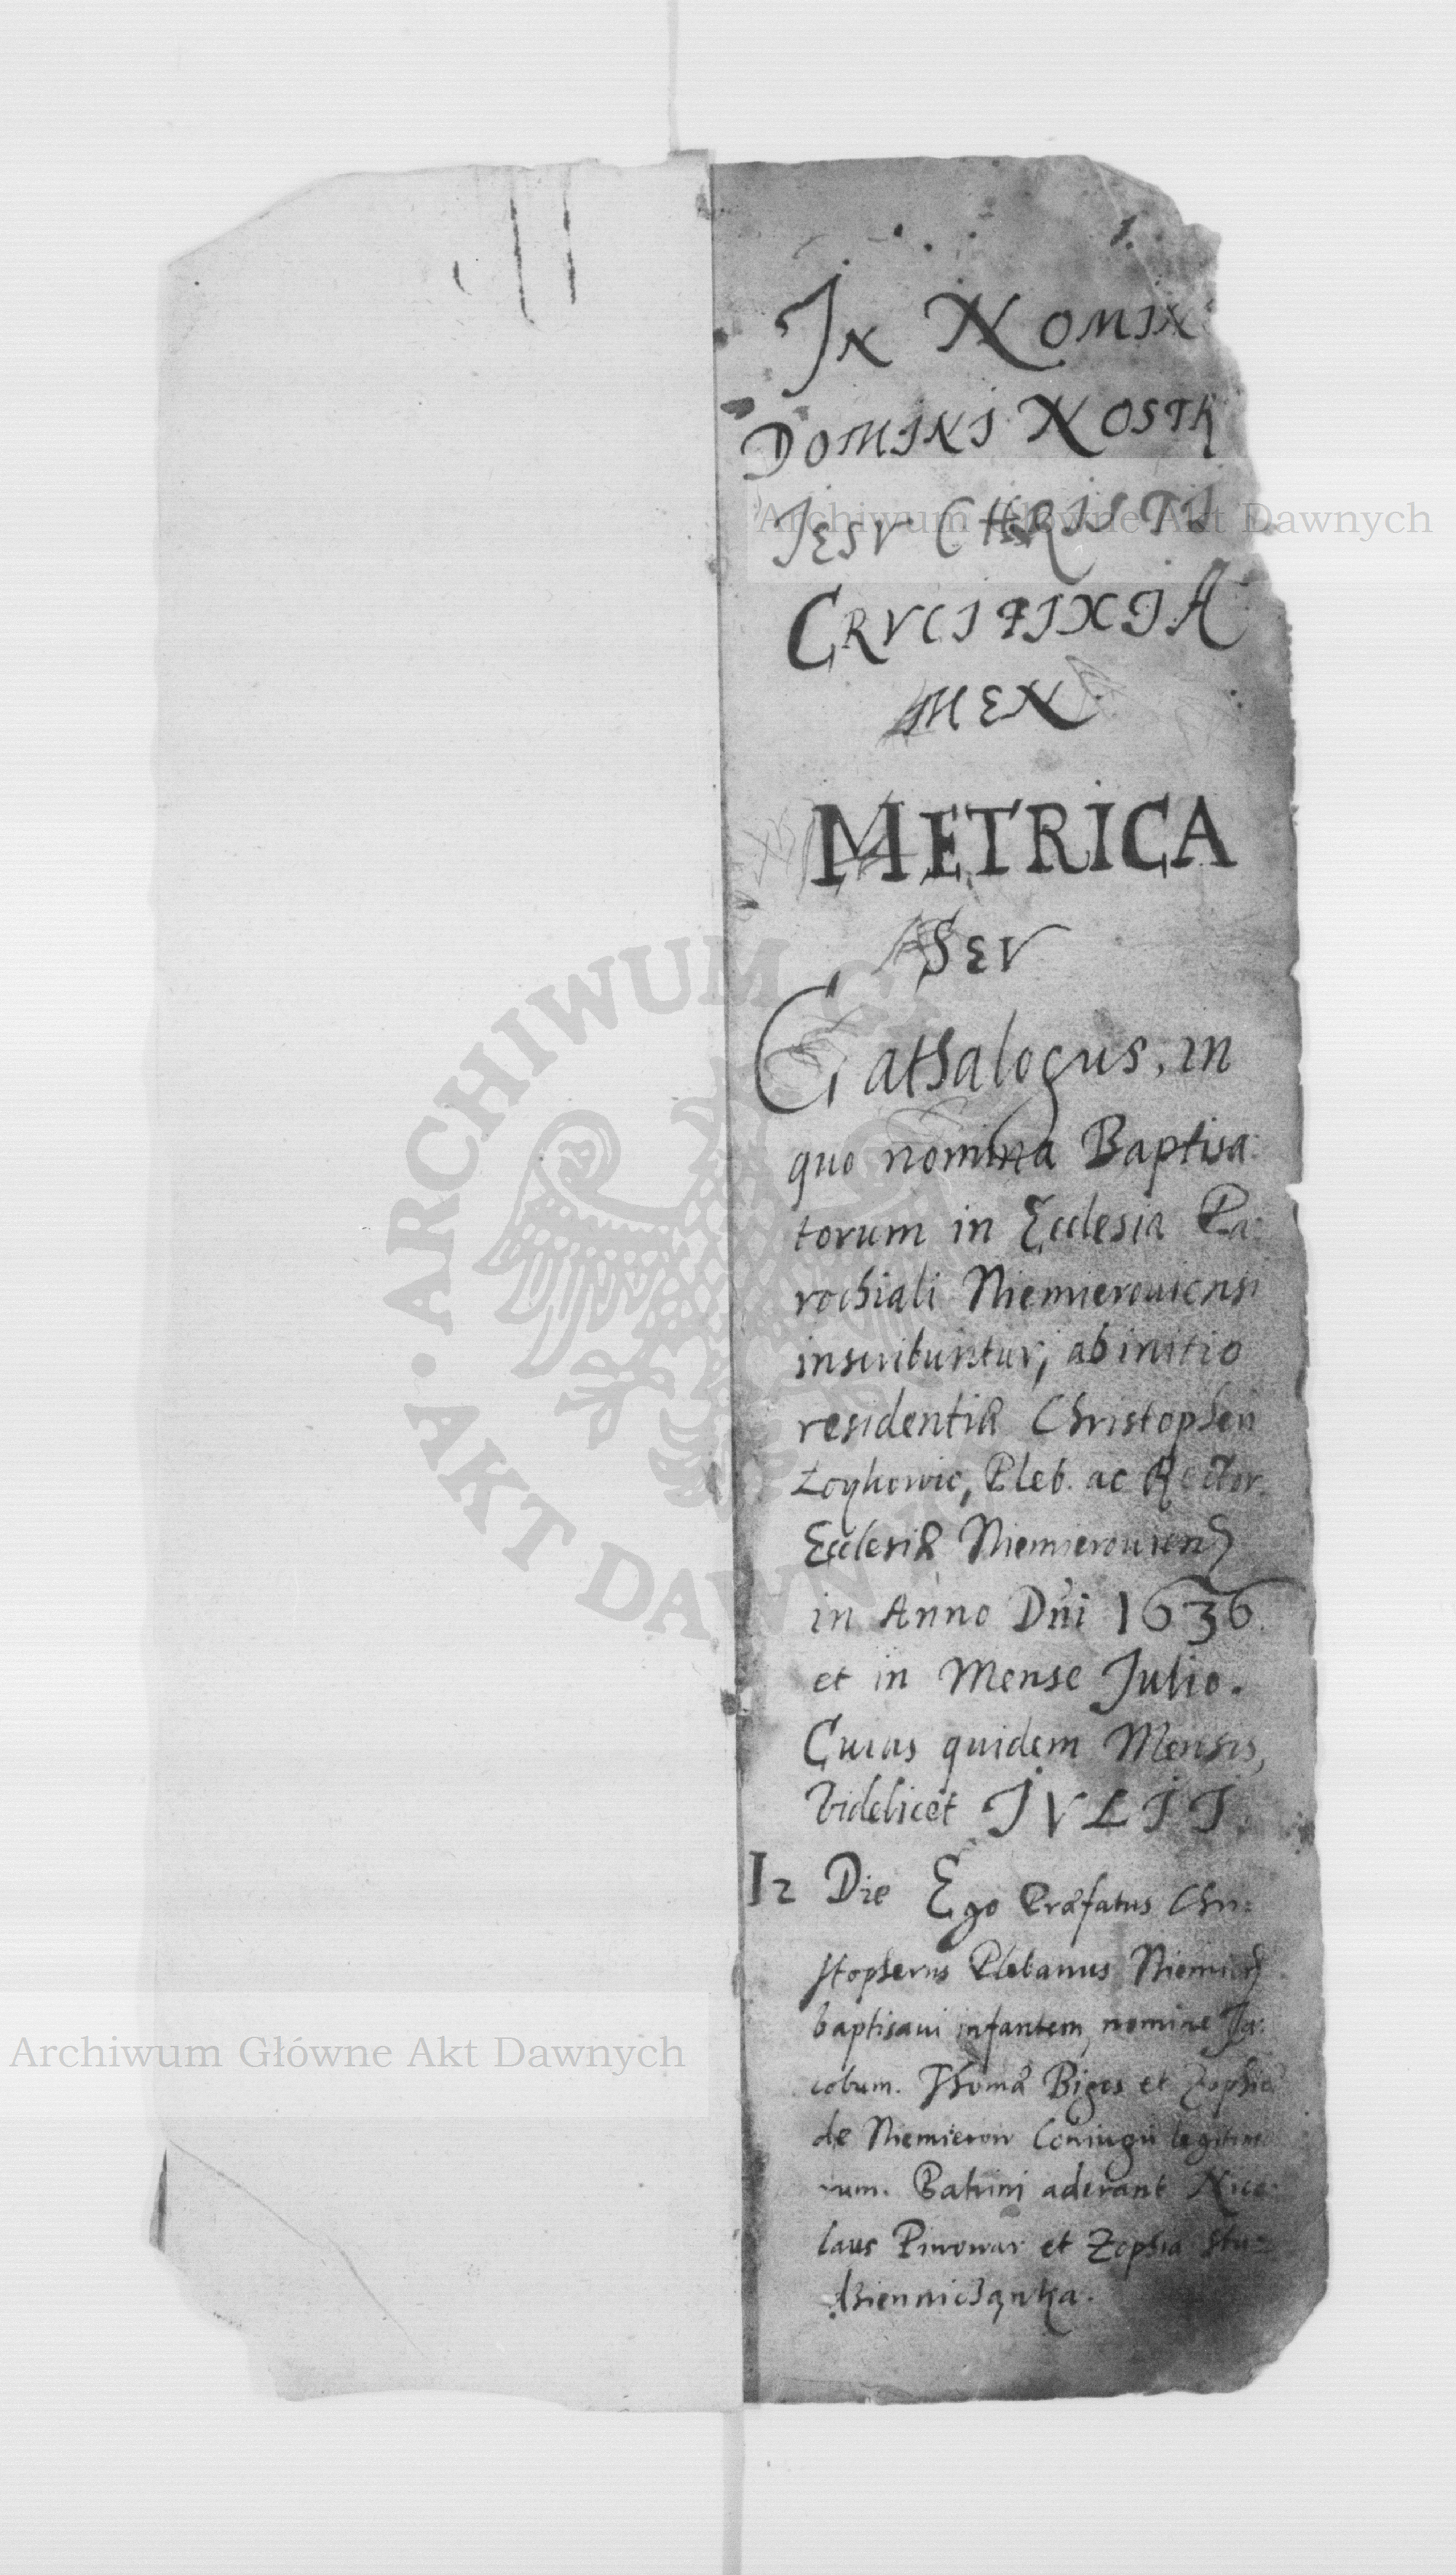 1.
IN NOMIN
DOMINI NOSTR
IESV CHRISTI
CRVCIFIXI A
MEN
METRICA
SEV
Cathalogus, in
quo nomina Baptisa:
torum in Ecclesia Pa:
rochiali Niemierouiensi
inscribuntur, ab initio
residentiæ Christopheri
Pleb. ac Rector.
Ecclesiæ Niemierouien
in Anno Dni 1636.
et in Mense Julio.
Cuius quidem Mensis,
Videlicet IVLII.
12 Die Ego Præfatus Chri:
stopherus Plebanus
baptisaui infantem, nomine Ja:
cobum. Thomæ Biges et Zophiæ
de Niemierow Coniugu legitim
rum. Patrini aderant Nico:
laus Piwowar et Zophia Stu:
dzienniczanka.
Archiwum Główne Akt Dawnych
Archiwum Główne Akt Dawnych
ARCHIWUM
AKT DAWN